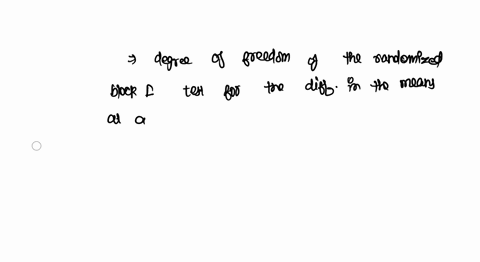 → degree of freedom of the randomized
block L test for the diff. in the means
at a